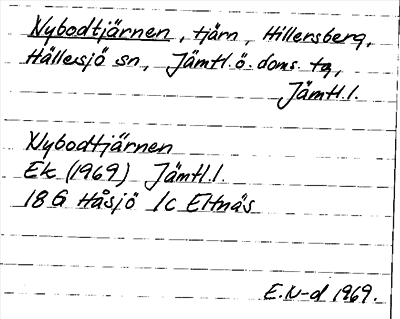 Nybodtjärnen, tjärn, Hillersberg,
Hällesjö sn, Jämtl. ö. doms. tg,
Jämtl. l.
Nybodtjärnen
Ek (1969) Jämtl. l.
18 G Håsjö 1c Eltnäs
E. N-d 1969.